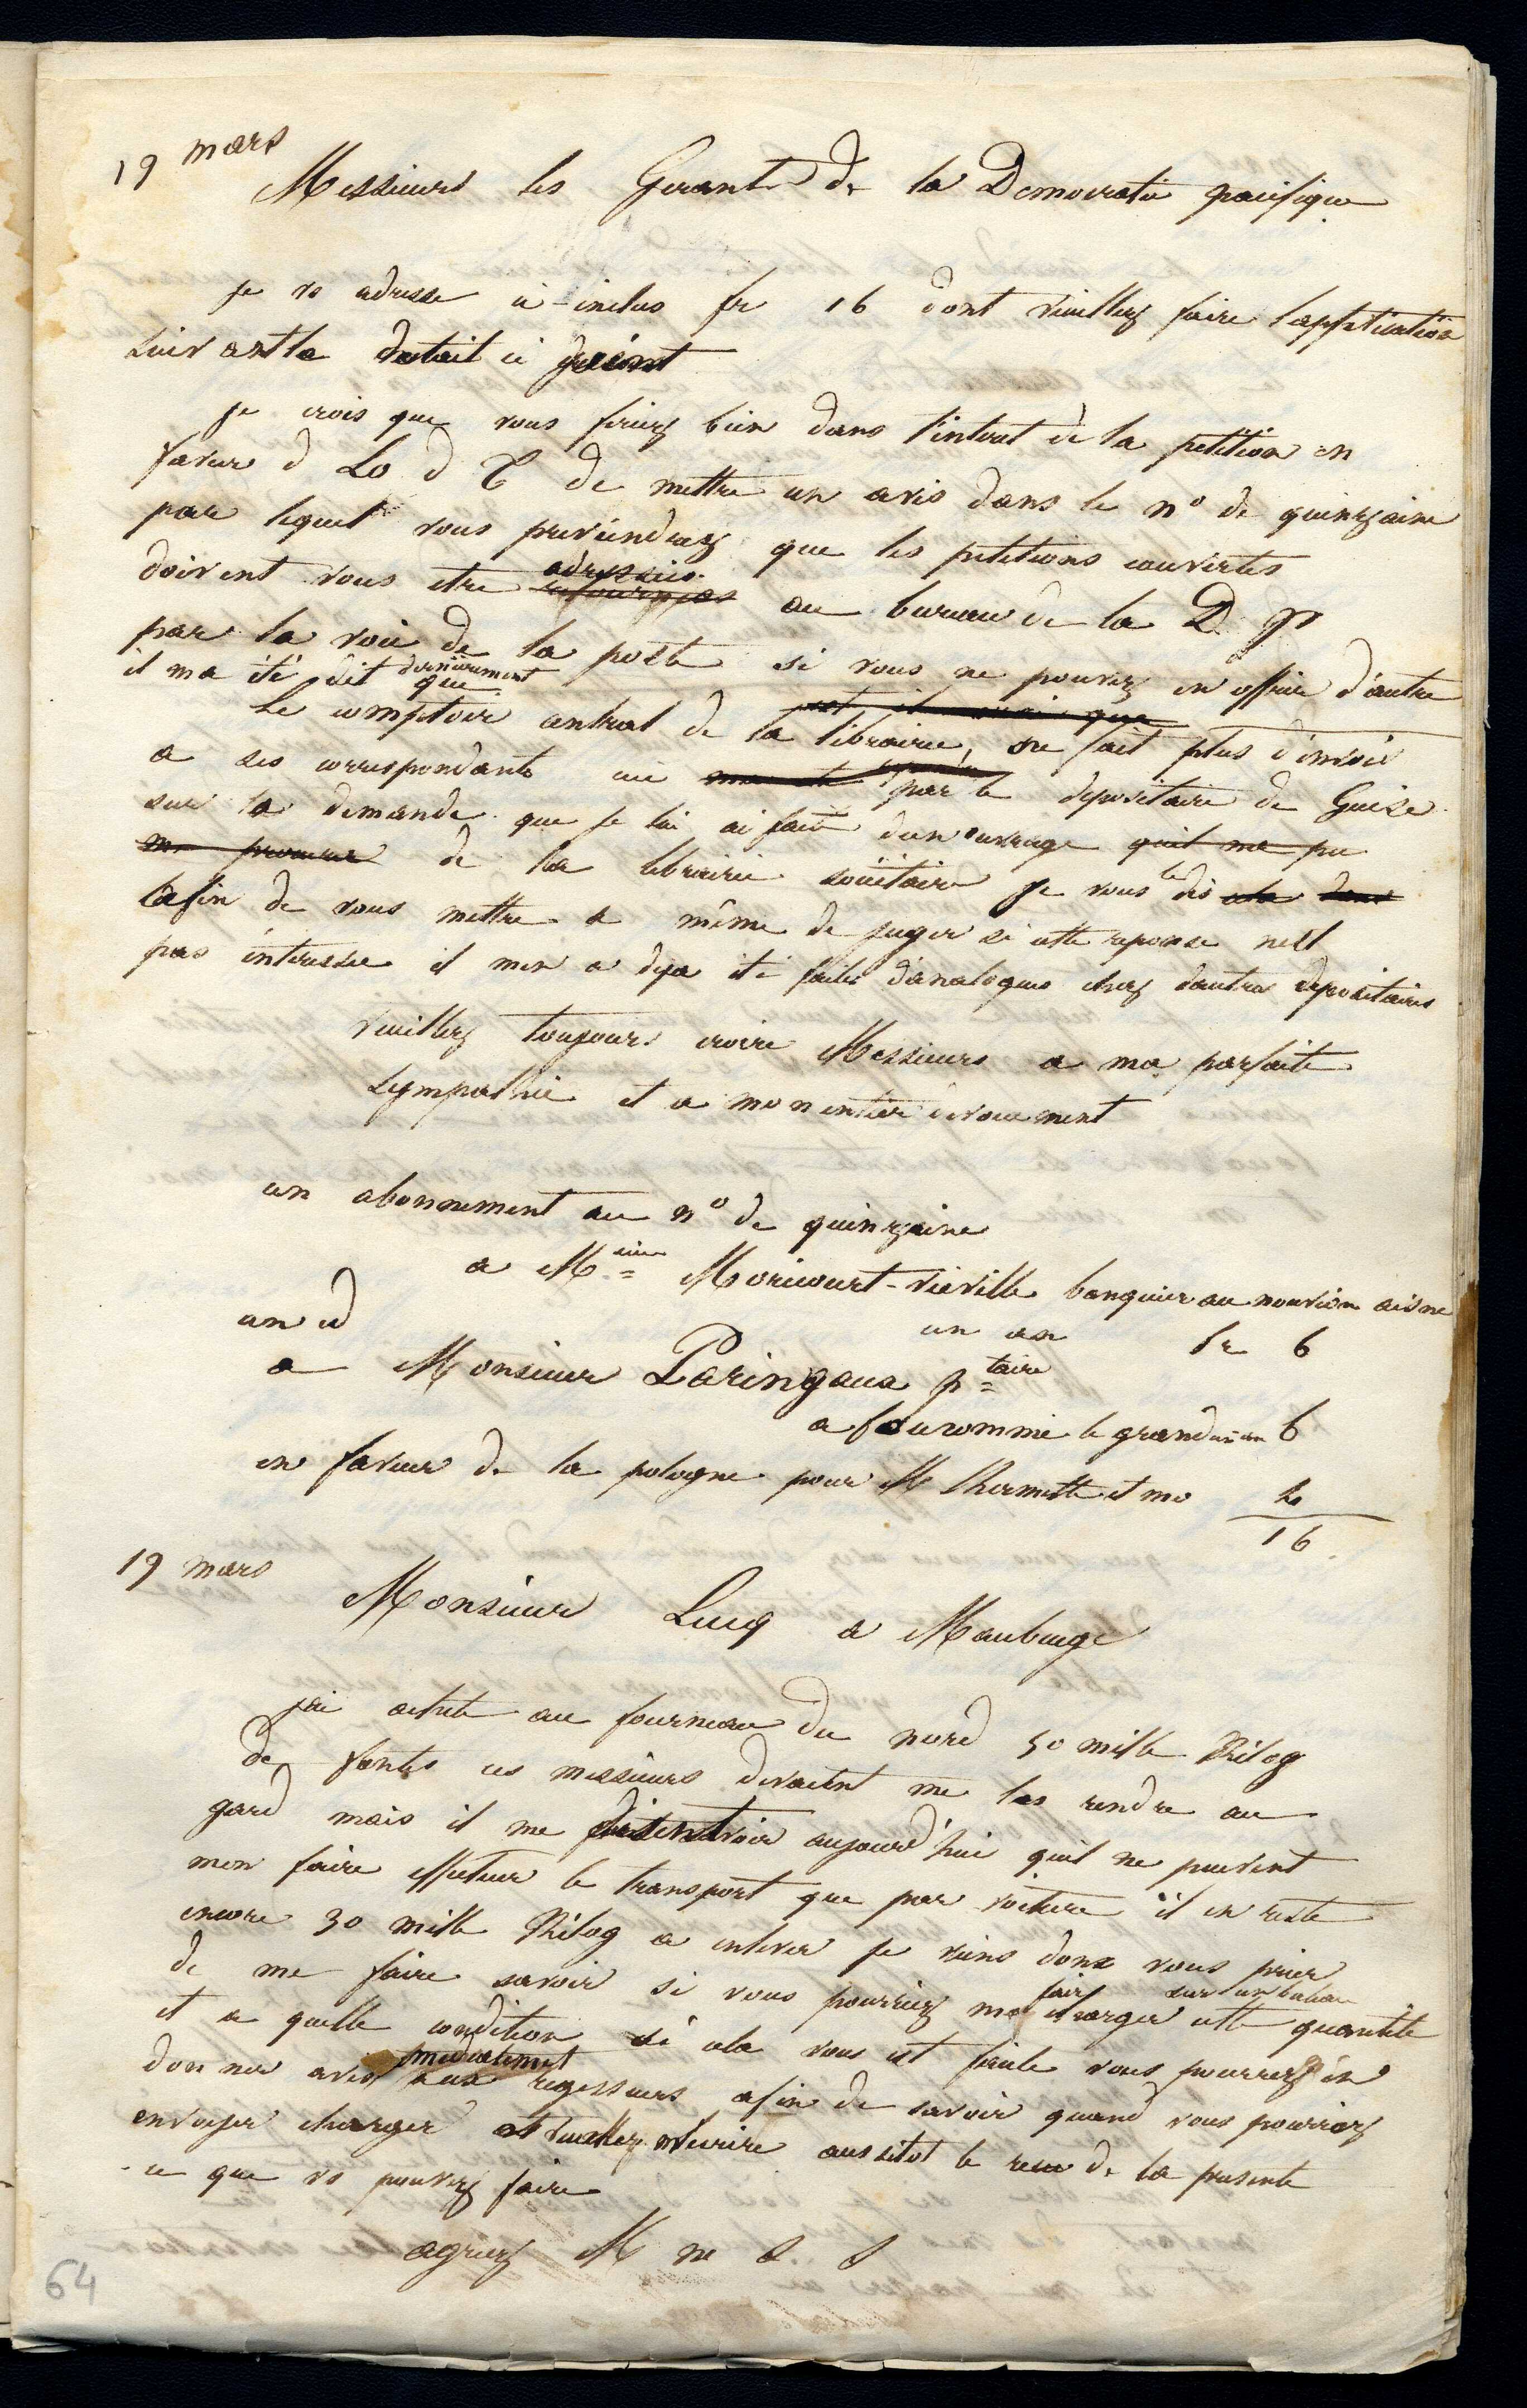 19 mars
Messieurs les Gerants de la Democratie pacifique
je vs adresse ci-inclus fr 16 dont veuillez faire lapplication
suivant le detail ci joint
je crois que vous feriez bien dans l'interet de la petition en
faveur d Lo d T de mettre un avis dans le no de quinzaine
par lequel vous previendrez que les petitions couvertes
doivent vous etre adressées au bureau de la D. P
par la voie de la poste si vous ne pouvez en offrir d'autre
il ma été dit dernièrement que
Le comptoir central de la librairie, ne fait plus d'envoie
a ses correspondants par le depositaire de Guise
sur la demande que je lui ai fait dun ouvrage quil ma pu
me procurer de la librairie sociétaire je vous le dis cela dans
lafin de vous mettre a même de juger si cette reponse nest
pas interessée il men a deja été faites d'analogues chez dautres depositaires
veuillez toujours croire Messieurs a ma parfaite
sympathie et a mon entier devouement
un abonnement au no de quinzaine
a Msieur Moricourt-viéville banquier au nouvion aisne
un an fr 6
un id
a Monsieur Paringaux ptaire
a le grand un an 6
en faveur de la pologne pour M Lhermitte et mo 4
16
19 mars
Monsieur Lucq a Maubeuge
jai acheté au fourneau du nord 50 mille Kilog
de fontes ces messieurs devaient me les rendre au
gard mais il me aujourd'hui quil ne peuvent
men faire effectuer le transport que par voiture il en reste
encore 30 mille Kilog a enlever je viens donc vous prier
de me faire savoir si vous pourriez me faire charger sur un bateau cette quantité
et a quelle condition si cela vous est facile vous pourrez en
donner avis aux regisseurs afin de savoir quand vous pourriez
envoyer charger et veuillez mecrire aussitot le recu de la presente
ce que vs pouvez faire
agréez M me S. S
64